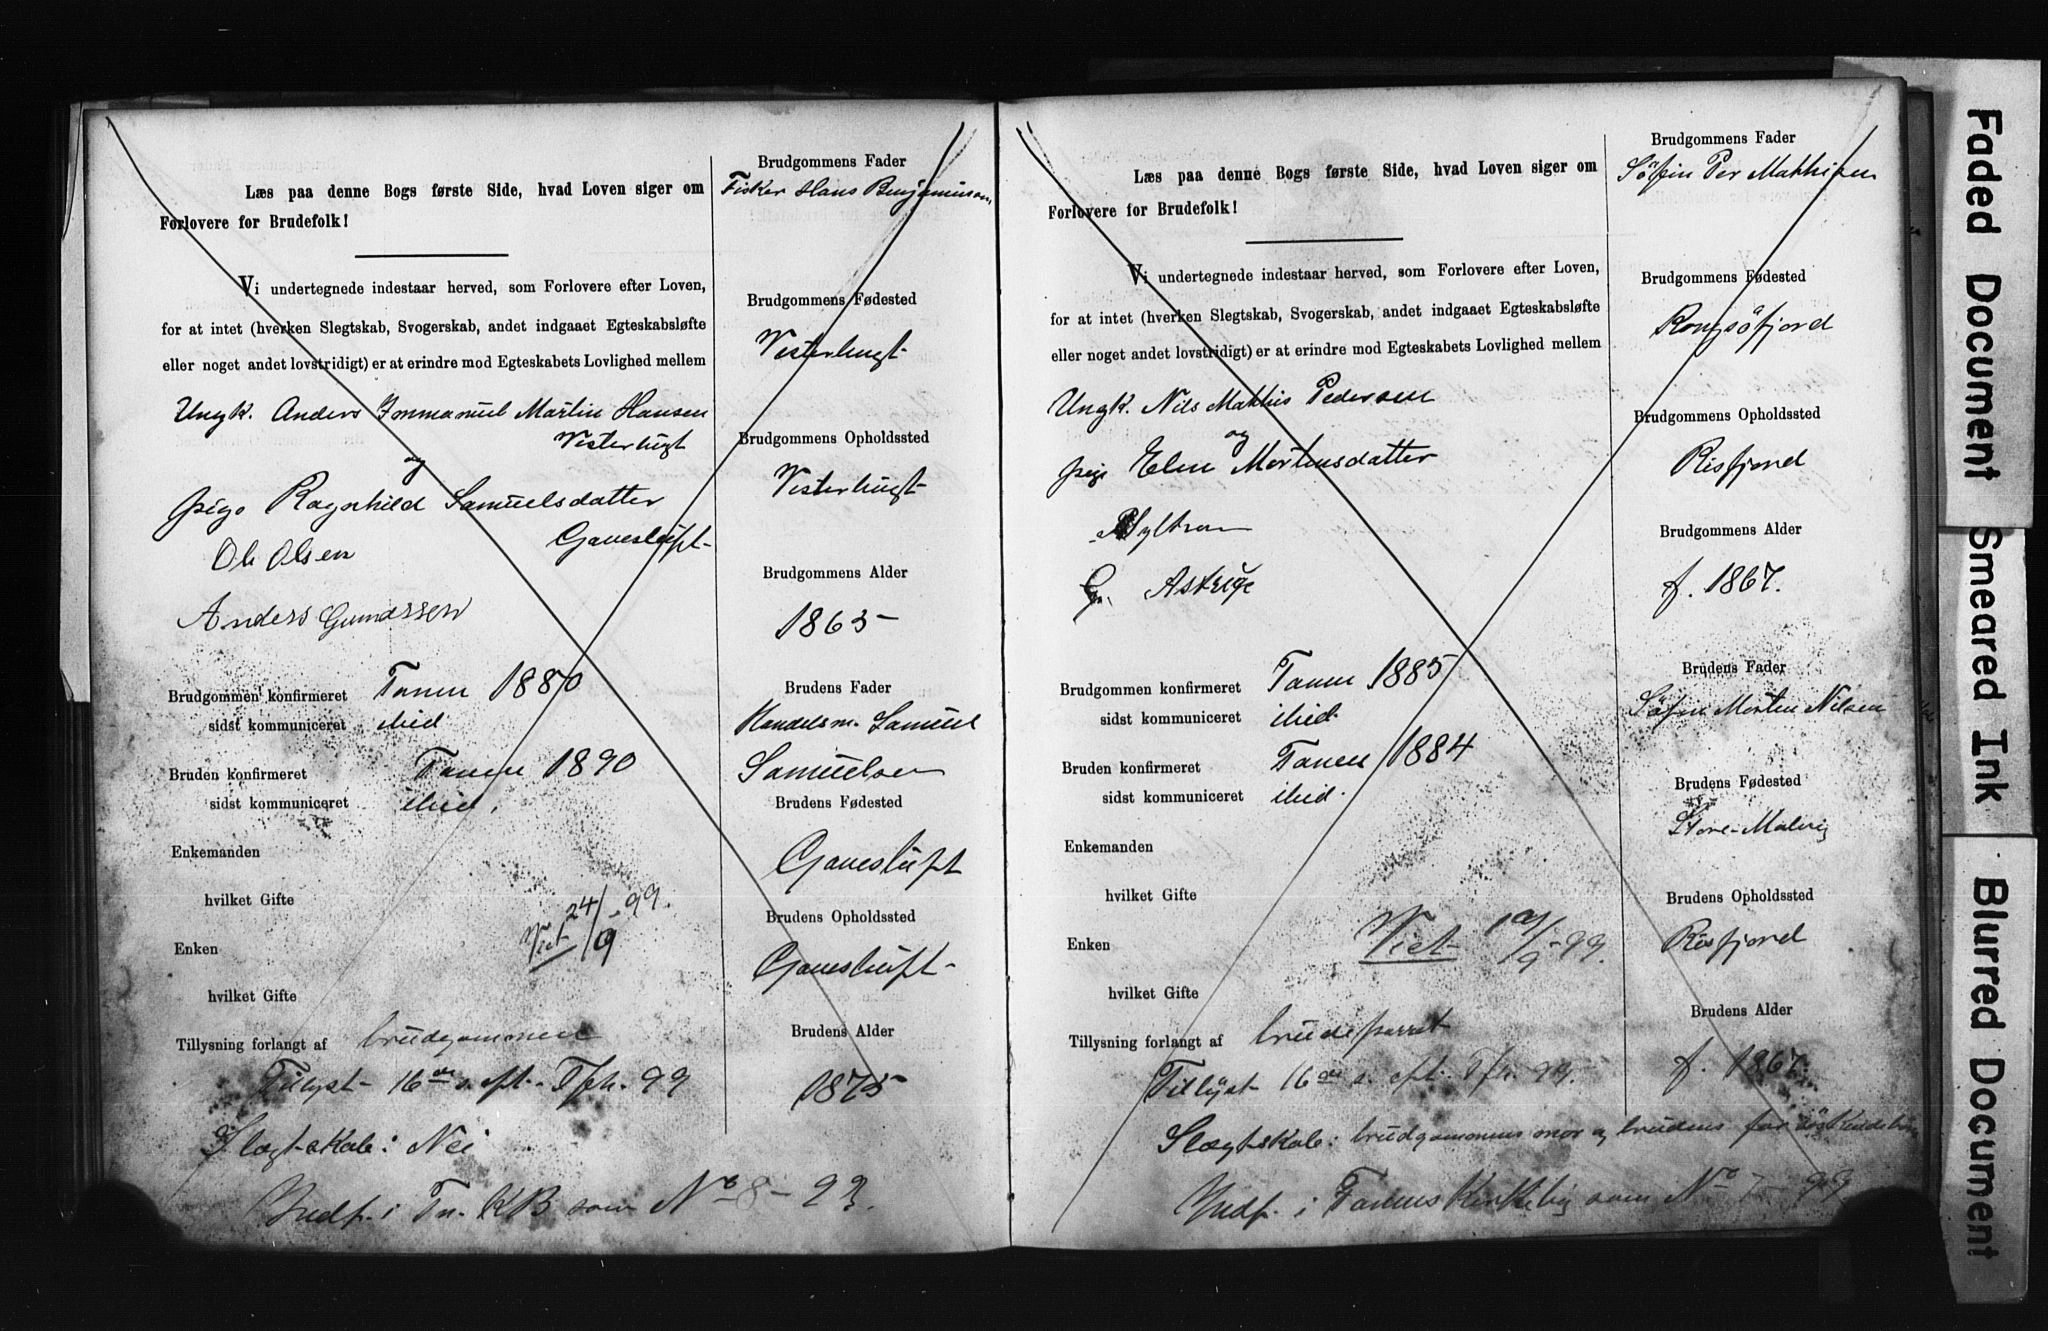 Læs paa denne Bogs første Side, hvad Loven siger om
Forlovere for Brudefolk!
Vi undertegnede indestaar herved, som Forlovere efter Loven,
for at intet (hverken Slegtskab, Svogerskab, andet indgaaet Egteskabsløfte
eller noget andet lovstridigt) er at erindre mod Egteskabets Lovlighed mellem
Ungk. Anders Immanuel Martin Hansen
Vesterbugt
og
pige Ragnhild Samuelsdatter
Gavesluft
Ole Olsen
Anders Gundssen
Brudgommen konfirmeret Tanen 1880
sidst kommuniceret ibid
Bruden konfirmeret Tanen 1890
sidst kommuniceret ibid.
Enkemanden
hvilket Gifte
Enken
Viet 24/9 -99.
hvilket Gifte
Tillysning forlangt af brudgommen
Tillyst 16de s. eft. Tfh. 99
Slegtskab: Nei
Indf. i Tn. KB som No 8 - 99.
Brudgommens Fader
Fisker Hans Benjaminsen
Brudgommens Fødested
Vesterbugt
Brudgommens Opholdssted
Vesterbugt
Brudgommens Alder
1865
Brudens Fader
Handelsm. Samuel
Samuelsen
Brudens Fødested
Gavesluft
Brudens Opholdssted
Gavesluft
Brudens Alder
1875
Læs paa denne Bogs første Side, hvad Loven siger om
Forlovere for Brudefolk!
Vi undertegnede indestaar herved, som Forlovere efter Loven,
for at intet (hverken Slegtskab, Svogerskab, andet indgaaet Egteskabsløfte
eller noget andet lovstridigt) er at erindre mod Egteskabets Lovlighed mellem
Ungk. Nils Mathis Pedersen
og
pige Elen Mortensdatter
G.
Brudgommen konfirmeret Tanen 1885
sidst kommuniceret ibid.
Bruden konfirmeret Tanen 1884
sidst kommuniceret ibid.
Enkemanden
hvilket Gifte
Enken
Viet
hvilket Gifte
Tillysning forlangt af brudeparret
Tillyst 16de s. eft. Tfh. 99.
Slægtskab: brudgommens mor og brudens far
Indf. i Tanens Kirkebog som No 7 - 99
Brudgommens Fader
Søfin Per Mathisen
Brudgommens Fødested
Kongsöfjord
Brudgommens Opholdssted
Risfjord
Brudgommens Alder
f. 1867.
Brudens Fader
Søfin Morten Nilsen
Brudens Fødested
Store-Malvig
Brudens Opholdssted
Risfjord
Brudens Alder
f. 1867.
Faded Document
Smeared Ink
Blurred Document